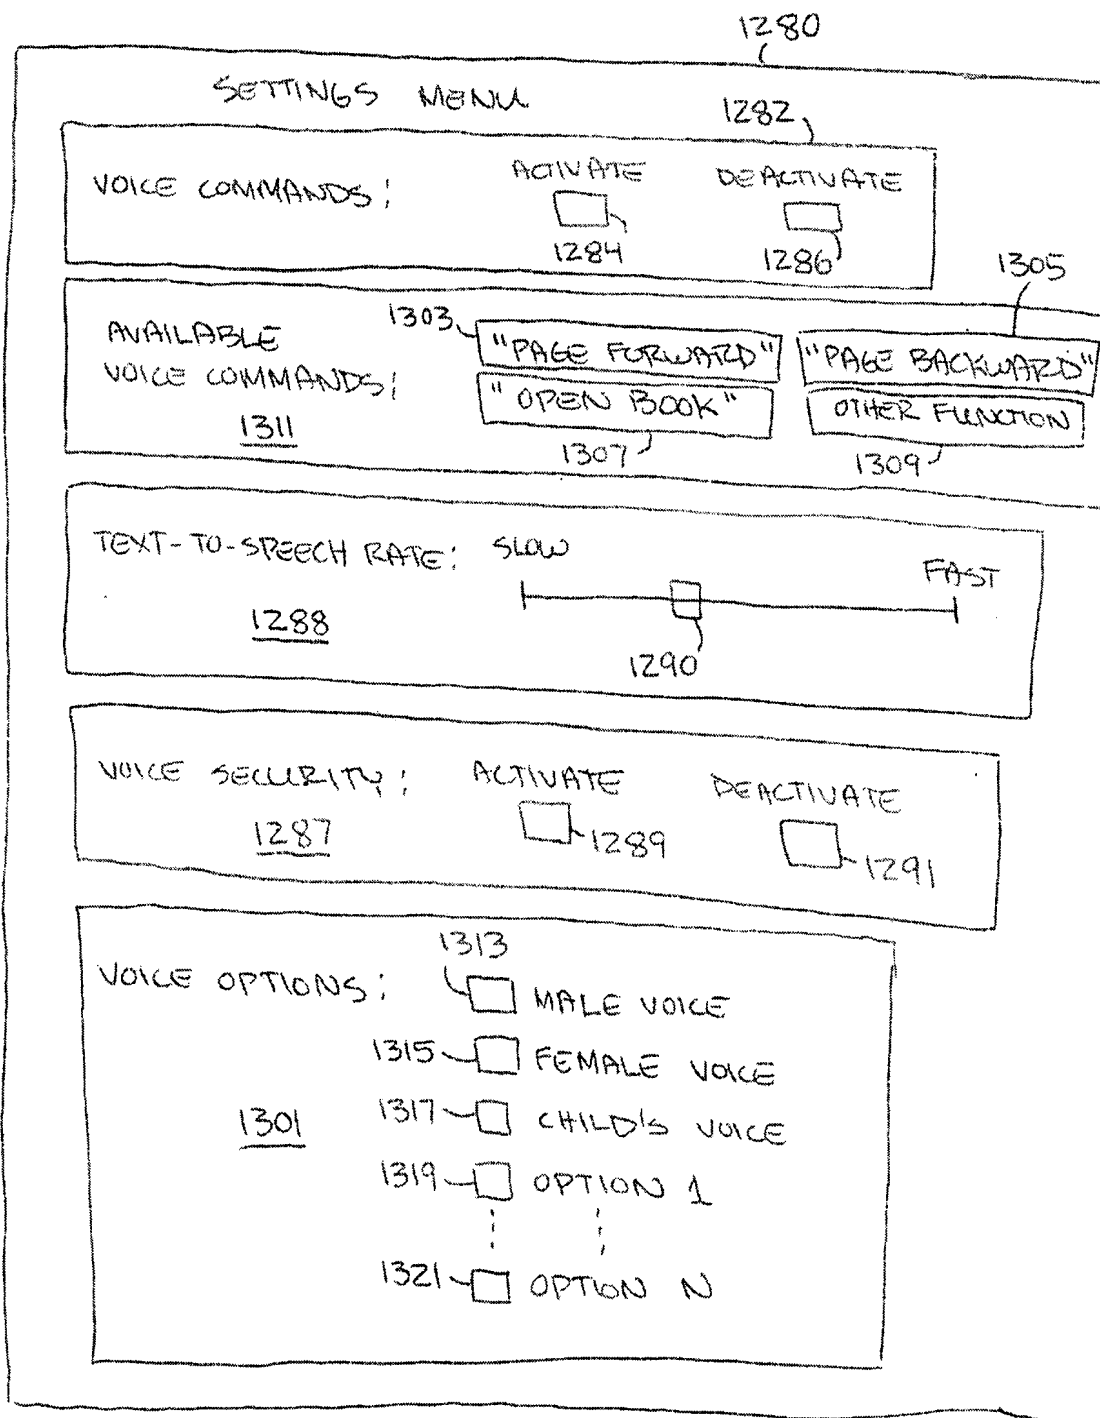 1280
SETTINGS MENU
1282
VOICE COMMANDS: ACTIVATE DEACTIVATE
1284 1286
1305
AVAILABLE VOICE COMMANDS:
1311
1303 "PAGE FORWARD" "PAGE BACKWARD"
"OPEN BOOK" OTHER FUNCTION
1307 1309
TEXT-TO-SPEECH RATE: SLOW FAST
1288
1290
VOICE SECURITY: ACTIVATE DEACTIVATE
1287 1289 1291
1313
VOICE OPTIONS: MALE VOICE
1315 FEMALE VOICE
1301 1317 CHILD'S VOICE
1319 OPTION 1
1321 OPTION N